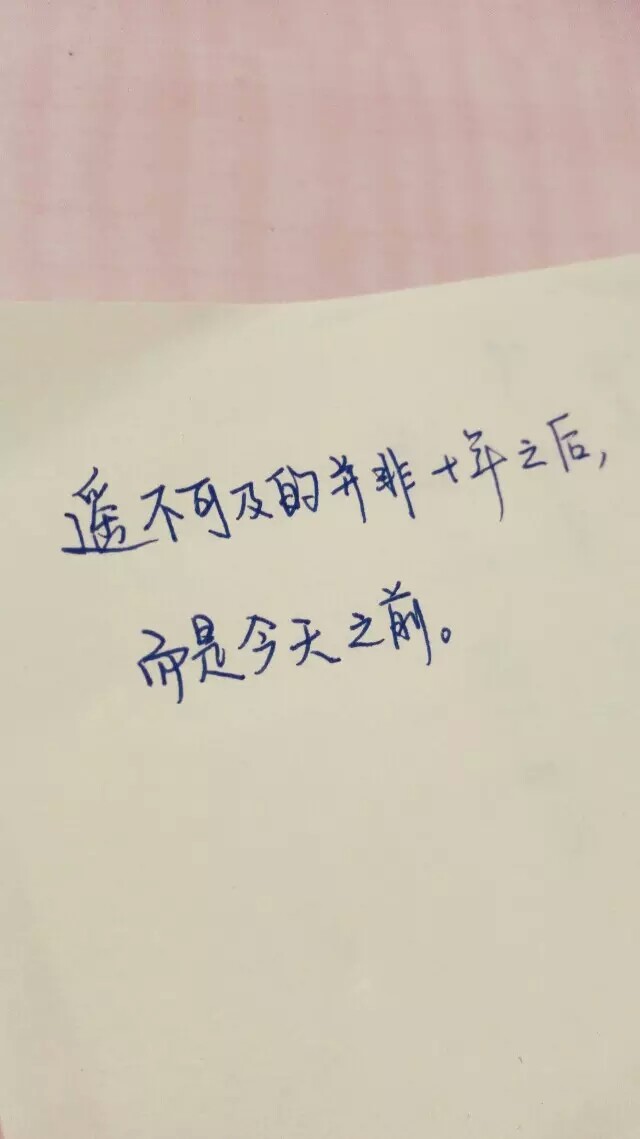 遥不可及的并非十年之后，
而是今天之前。